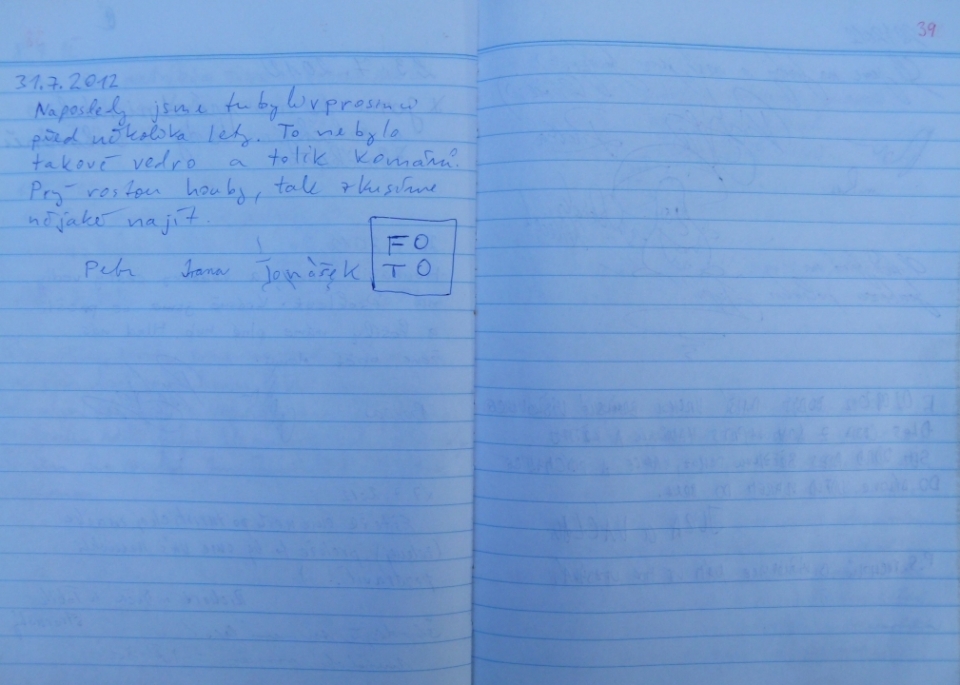 39
31.7.2012
Naposledy jsme tu byli v prosinci
před několika lety. To nebylo
takové vedro a tolik komárů.
Prý rostou houby, tak zkusíme
nějaké najít.
Petr Ivana
FO
TO